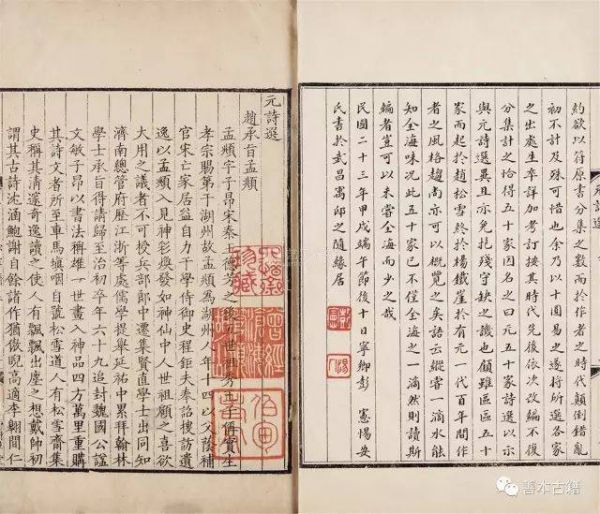 約欲以符原書分集之數而於作者之時代顛倒錯亂
初不計及殊可惜也余乃以十國易之遂將所選各家
之出處生卒詳加考訂換其時代先後依次改編不復
分集計之恰得五十家因名之曰元五十家詩選以示
與元詩選異且亦免扎殘守缺之譏也顧雖區區五十
家而起於趙松雪終於楊鐵崖於有元一代百年間作
者之風格趨尚亦可以概覽之矣語云縱嘗一滴水能
知全海味況此五十家已不僅全海之一滴然則讀斯
編者豈可以未嘗全海而少之哉
民國二十三年甲戌端午節後十日寧鄉彭憲惕安
氏書於武昌寓邸之隨緣居
元詩選
趙承旨孟頫
孟頫字子昂宋秦王德芳之後五世祖秀王子偁實生
孝宗賜第于湖州故孟頫為湖州人年十四以父蔭補
官宋亡家居益自力于學侍御史程鉅夫奉詔搜訪遺
逸以孟頫入見神彩煥發如神仙中人世祖顧之喜欲
大用之議者不可授兵部郎中遷集賢直學士出同知
濟南總管府歷江浙等處儒學提舉延祐中累拜翰林
學士承旨得請歸至治初卒年六十九追封魏國公諡
文敏子昂以書法稱雄一世畫入神品四方萬里重購
其詩文者所至車馬填咽自號松雪道人有松雪齋集
史稱其清邃奇逸讀之使人有飄飄出塵之想戴帥初
謂其古詩沈涵鮑謝自餘諸作猶傲睨高適李翱間仁
善本古籍